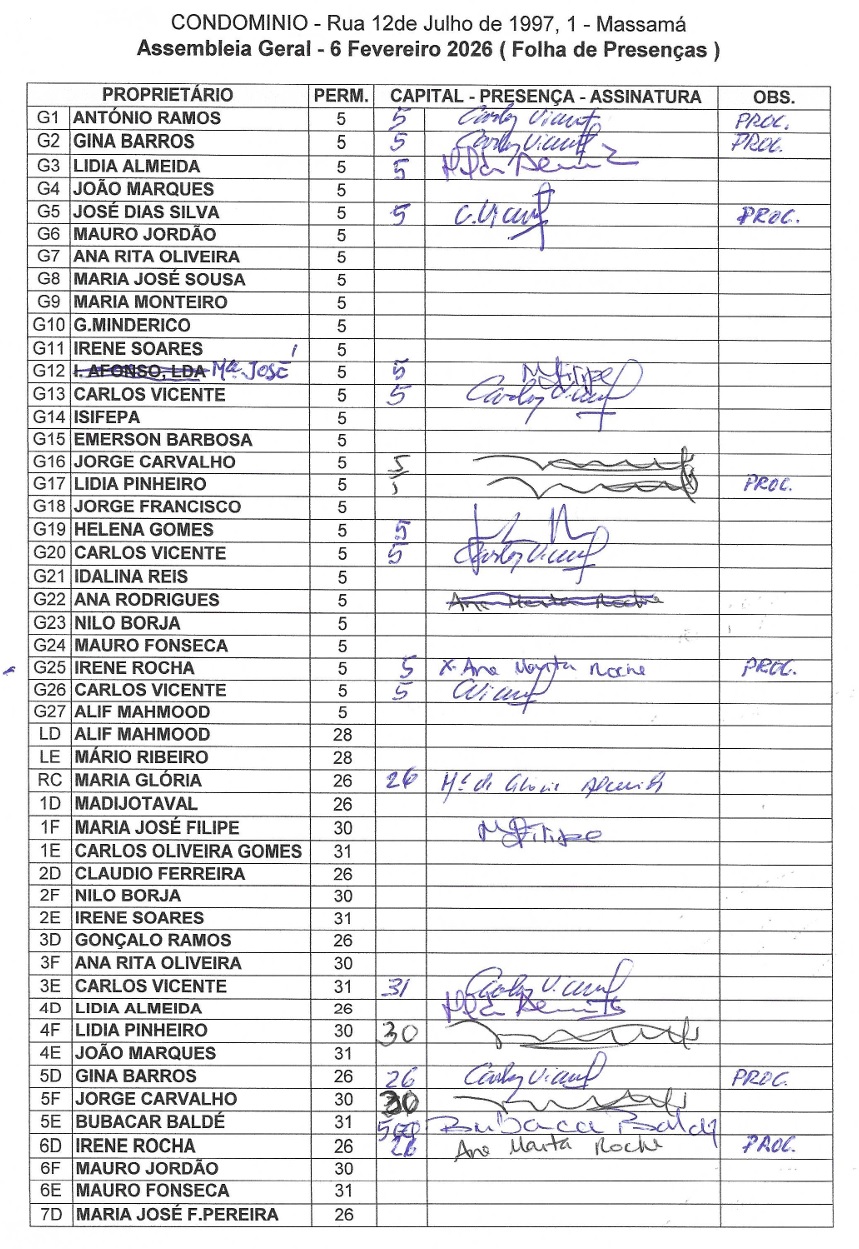 CONDOMINIO - Rua 12de Julho de 1997, 1 - Massamá
Assembleia Geral - 6 Fevereiro 2026 ( Folha de Presenças )
PROPRIETÁRIO PERM. CAPITAL - PRESENÇA - ASSINATURA OBS.
G1 ANTÓNIO RAMOS 5 5 Carlos Vicente PROC.
G2 GINA BARROS 5 5 Carlos Vicente PROC.
G3 LIDIA ALMEIDA 5 5
G4 JOÃO MARQUES 5
G5 JOSÉ DIAS SILVA 5 5 C. Vicente PROC.
G6 MAURO JORDÃO 5
G7 ANA RITA OLIVEIRA 5
G8 MARIA JOSÉ SOUSA 5
G9 MARIA MONTEIRO 5
G10 G.MINDERICO 5
G11 IRENE SOARES 5
G12 I. AFONSO, LDA Mª JOSÉ 5 5 M Filipe
G13 CARLOS VICENTE 5 5 Carlos Vicente
G14 ISIFEPA 5
G15 EMERSON BARBOSA 5
G16 JORGE CARVALHO 5 5
G17 LIDIA PINHEIRO 5 5 PROC.
G18 JORGE FRANCISCO 5
G19 HELENA GOMES 5 5
G20 CARLOS VICENTE 5 5 Carlos Vicente
G21 IDALINA REIS 5
G22 ANA RODRIGUES 5 Ana Marta Rocha
G23 NILO BORJA 5
G24 MAURO FONSECA 5
G25 IRENE ROCHA 5 5 x Ana Marta Rocha PROC.
G26 CARLOS VICENTE 5 5 CVicente
G27 ALIF MAHMOOD 5
LD ALIF MAHMOOD 28
LE MÁRIO RIBEIRO 28
RC MARIA GLÓRIA 26 26 Mª da Glória Almeida
1D MADIJOTAVAL 26
1F MARIA JOSÉ FILIPE 30 M Filipe
1E CARLOS OLIVEIRA GOMES 31
2D CLAUDIO FERREIRA 26
2F NILO BORJA 30
2E IRENE SOARES 31
3D GONÇALO RAMOS 26
3F ANA RITA OLIVEIRA 30
3E CARLOS VICENTE 31 31 Carlos Vicente
4D LIDIA ALMEIDA 26
4F LIDIA PINHEIRO 30 30
4E JOÃO MARQUES 31
5D GINA BARROS 26 26 Carlos Vicente PROC.
5F JORGE CARVALHO 30 30
5E BUBACAR BALDÉ 31 Bubacar Baldé
6D IRENE ROCHA 26 26 Ana Marta Rocha PROC.
6F MAURO JORDÃO 30
6E MAURO FONSECA 31
7D MARIA JOSÉ F.PEREIRA 26